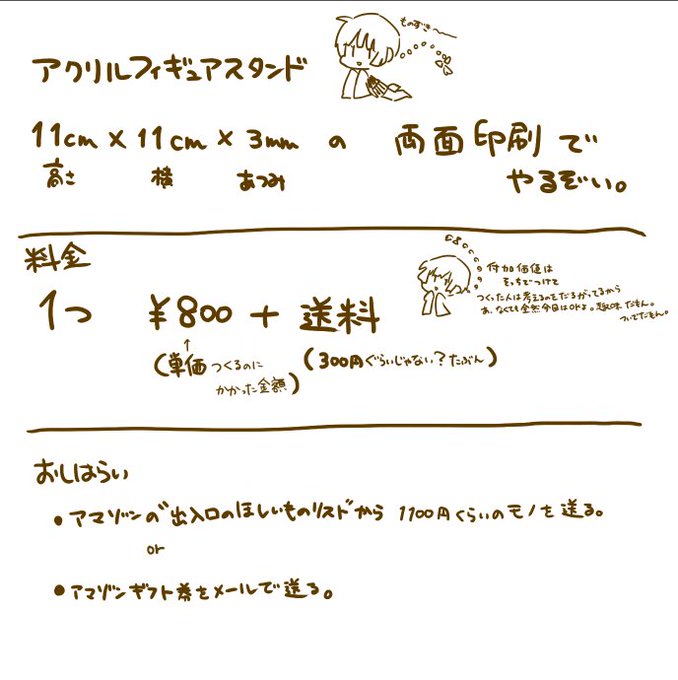 ものずき〜
アクリルフィギュアスタンド
11cm × 11cm × 3mm の 両面印刷で
高さ 横 あつみ やるぞい。
料金
1つ ¥800 + 送料
↑
(単価 つくるのに
かかった金額)
(300円ぐらいじゃない?たぶん)
付加価値は
そっちでつけて
つくった人は考えるのをだるがってるから
あ、なくても全然今日はOKよ。趣味だもん。
ついでだもん。
おしはらい
• アマゾンの出入口のほしいものリストから 1100円くらいのモノを送る。
or
• アマゾンギフト券をメールで送る。